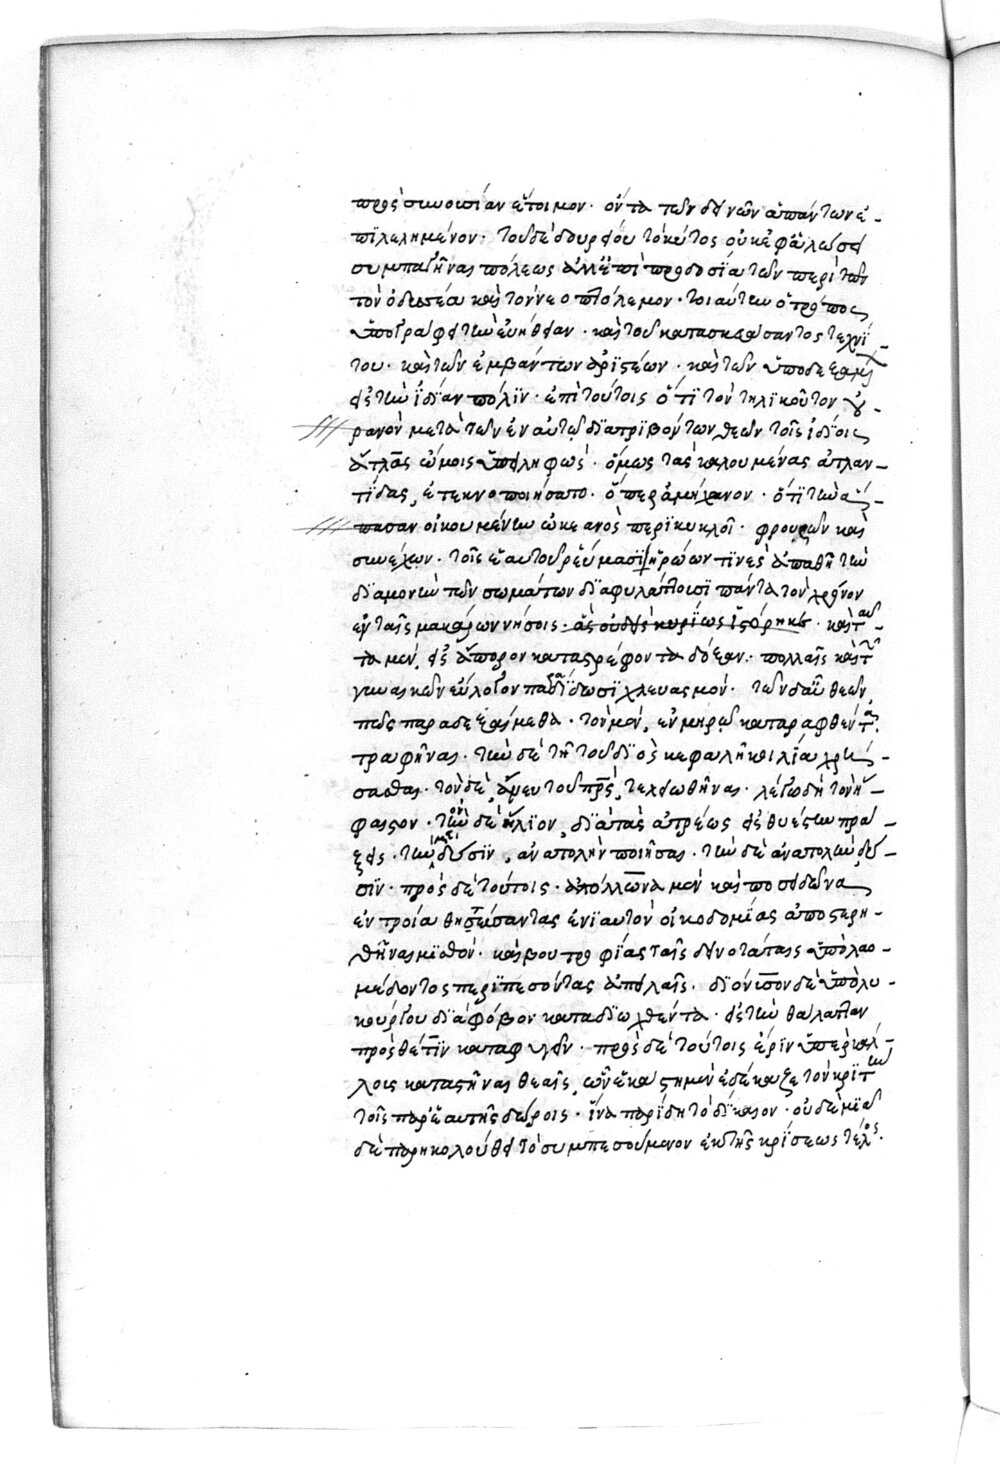 πρὸς συνουσίαν ἕτοιμον· ὄντα τῶν δεινῶν ἁπάντων ἐ-
πϊλελημένον· τοῦ δὲ δουρείου τὸ κύτος οὐκ ἐφάλωσε
συμπαγῆναι πόλεως ἀλλ' ἐπὶ προδοσία τῶν περὶ τὸν
τὸν ὀδυσέα καὶ τὸν νεοπτόλεμον· τοιαύτην ὁ τρόπος
ὑπογράφει τὴν εὐήθειαν· καὶ τοῦ κατασκευάσαντος τεχνί-
του· καὶ τῶν ἐμβάντων ἀρϊστέων· καὶ τῶν ὑποδεξαμέ
εἰς τὴν ἰδΐαν πόλϊν· ἐπὶ τούτοις ὅτϊ τὸν τηλϊκοῦτον οὐ-
ρανὸν μετὰ τῶν ἐν αὐτῶ δϊατρϊβόντων θεῶν τοῖς ἰδΐοις
ἄτλας ὤμοις ὑπειληφὼς· ὅμως τὰς καλουμένας ἀτλαν-
τΐδας, ἐτεκνοποιήσατο· ὅπερ ἀμήχανον· ὅτϊ τὴν ἅ-
πασαν οἰκουμένην ὠκεανὸς περϊκυκλοῖ· φρουρῶν καὶ
συνέχων· τοῖς ἑαυτοῦ ῥεύμασϊ ἡρώων τϊνὲς ἀπαθῆ τὴν
δϊαμονὴν τῶν σωμάτων δϊαφυλάττουσϊ πάντα τὸν χρόνον
ἐν ταῖς μακάρων νήσοις· ἃς οὐδεὶς κυρΐως ἱστόρηκε· καὶ ταῦ-
τα μὲν, εἰς ἄπορον καταστρέφοντα δόξαν· πολλαῖς καὶ τῶν
γυναικῶν εὔλογον παραδΐδωσϊ χλευασμόν· τῶν δ' αὖ θεῶν
πῶς παραδεξαίμεθα· τὸν μὲν, ἐν μηρῶ καταραφθέντα
τραφῆναι· τὴν δὲ τῆ τοῦ δϊὸς κεφαλῆ κοιλΐα χρή-
σασθαι· τὸν δὲ, ἄνευ τοῦ πρς, τελειωθῆναι· λέγω δὴ τὸν ἥ-
φαιστον· τὸν δὲ ἥλϊον, δϊὰ τὰς ἀτρέως εἰς θυέστην πρά-
ξεις· τὴν μὲν δύσϊν, ἀνατολὴν ποιῆσαι· τὴν δὲ ἀνατολὴν, δύ-
σϊν· πρὸς δὲ τούτοις· ἀπόλλωνα μὲν καὶ ποσειδῶνα
ἐν τροία θητεύσαντας ἐνϊαυτὸν οἰκοδομΐας ἀποστερη-
θῆναι μϊσθόν· καὶ βουτροφΐας ταῖς δυνοτάταις ὑπὸ λαο-
μέδοντος περϊπεσόντας ἀπειλαῖς· δϊόνυσον δὲ ὑπὸ λυ-
κούργου δϊὰ φόβον καταδϊωχθέντα· εἰς τὴν θάλατταν
πρὸς θέτϊν καταφυγεῖν· πρὸς δὲ τούτοις ἔρϊν ὑπὲρ κάλ-
λους καταστῆναι θεαῖς, ὧν ἑκάστη μὲν ἐδέκαζε τὸν κρϊτὴν
τοῖς παρ' ἑαυτῆς δώροις· ἵνα παρΐδη τὸ δΐκαιον· οὐδεμϊᾶ
δὲ παρηκολούθει τὸ συμπεσούμενον ἐκ τῆς κρΐσεως τέλος.